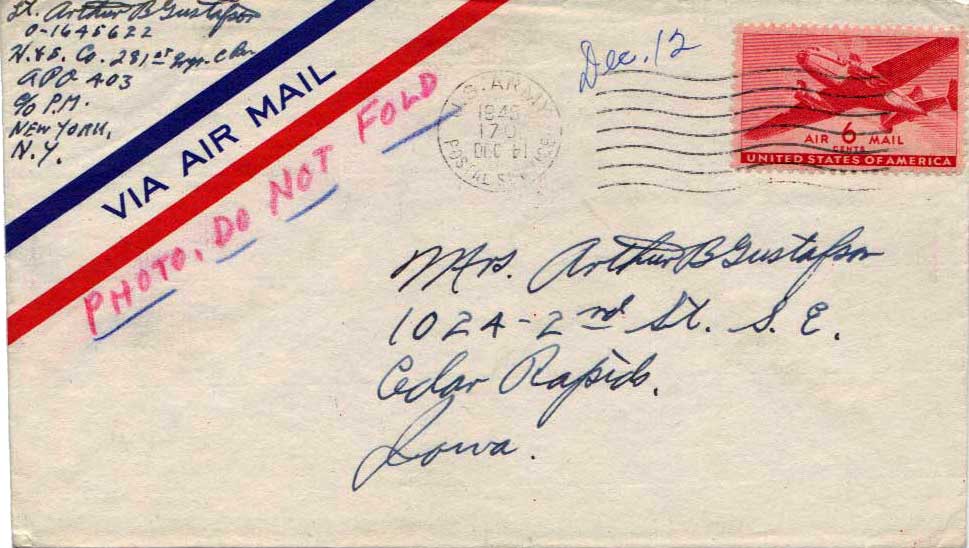 Lt. Arthur B Gustafson
O-1645622
H.&S. Co. 281st Engr. C Bn.
APO 403
c/o P.M.
NEW YORK,
N.Y.
VIA AIR MAIL
PHOTO, DO NOT FOLD
U.S. ARMY
1945
DEC 14
POSTAL SERVICE
Dec. 12
AIR 6 MAIL
CENTS
UNITED STATES OF AMERICA
Mrs. Arthur B Gustafson
1024-2nd St. S.E.
Cedar Rapids.
Iowa.